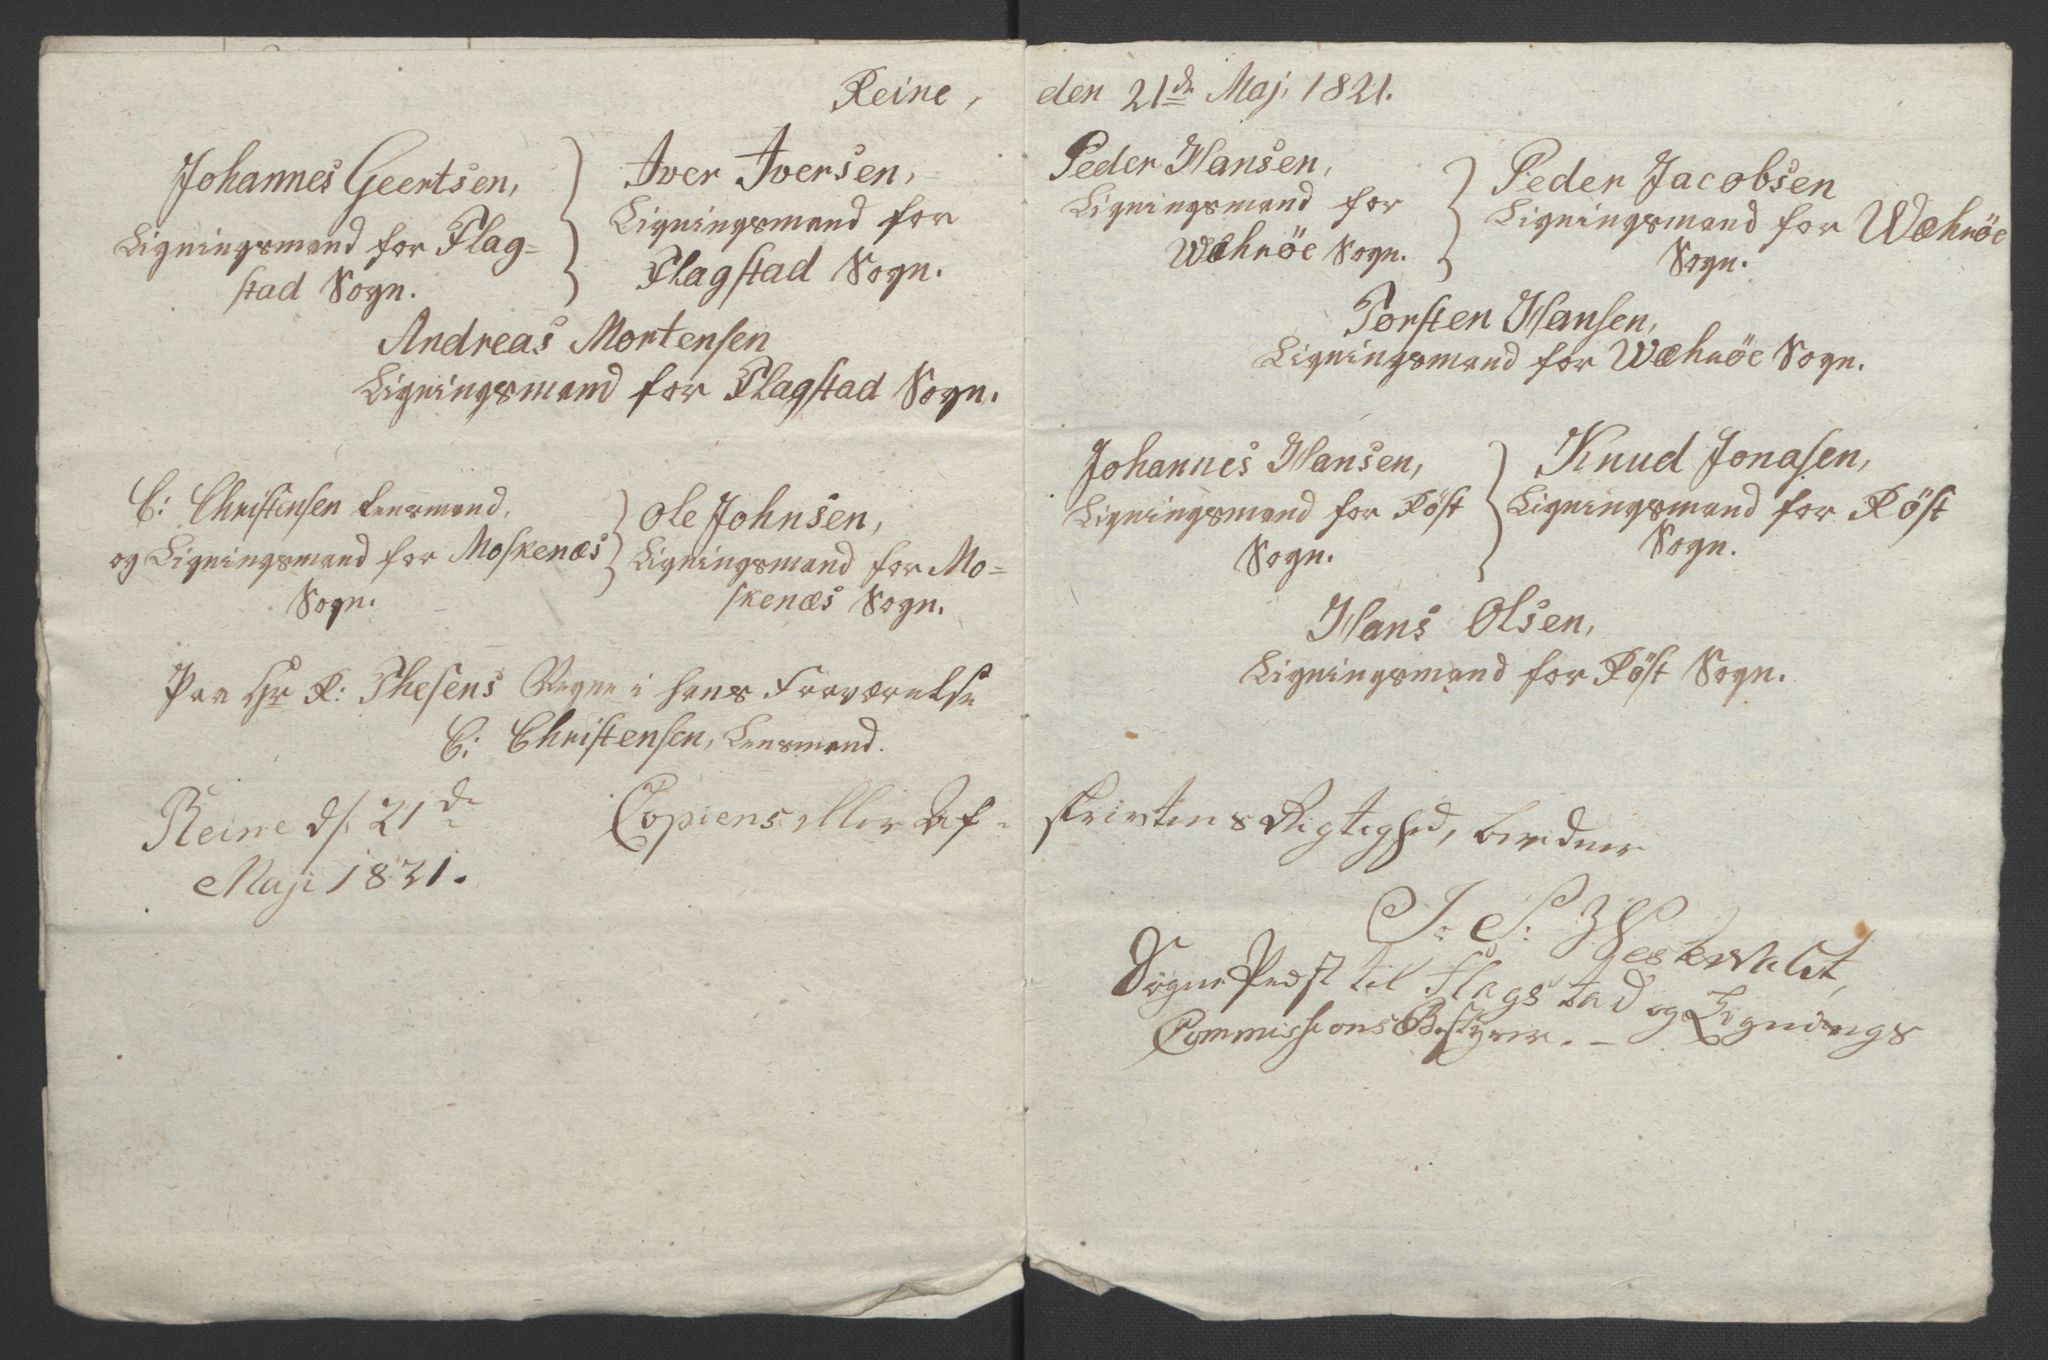 Reine, den 21de Maj 1821.
Johannes Geertsen,
Ligningsmand for Flag=
stad Sogn.
Iver Iversen,
Ligningsmand for
Flagstad Sogn.
Andreas Mortensen
Ligningsmand for Flagstad Sogn.
Peder Hansen,
Ligningsmand for
Wæhröe Sogn.
Peder Jacobsen
Ligningsmand for Wæhröe
Sogn.
Torsten Hansen,
Ligningsmand for Wæhröe Sogn.
C: Christensen Lensmand,
og Ligningsmand for Moskenæs
Sogn.
Ole Johnsen,
Ligningsmand for Mo=
skenæs Sogn.
Johannes Hansen,
Ligningsmand for Röst
Sogn.
Knud Jonasen,
Ligningsmand for Röst
Sogn.
Hans Olsen,
Ligningsmand for Röst Sogn.
Paa Hr R: Thesens Vegne i hans Fraværelse
C: Christensen, Lensmand.
Reine d. 21de
Maji 1821.
Copiens eller Af=
skrivtens Rigtighed, bevidner
Sogne Præst til Flagstad og Lignings
Commissions Bestyrer. –